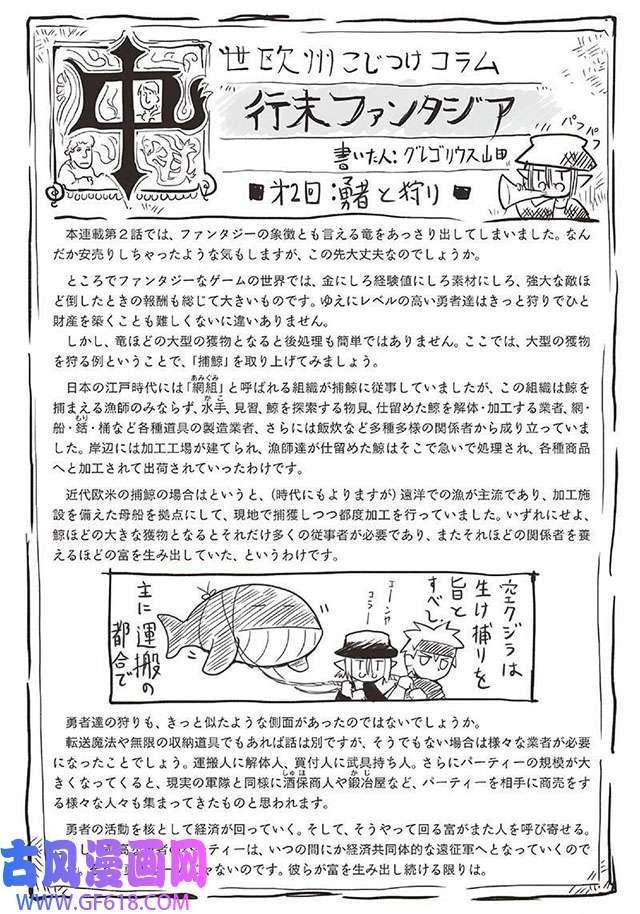 中世欧州こじつけコラム
行末ファンタジア
書いた人:グレゴリウス山田
パフパフ
■第2回:勇者と狩り■
本連載第2話では、ファンタジーの象徴とも言える竜をあっさり出してしまいました。なん
だか安売りしちゃったような気もしますが、この先大丈夫なのでしょうか。
ところでファンタジーなゲームの世界では、金にしろ経験値にしろ素材にしろ、強大な敵ほ
ど倒したときの報酬も総じて大きいものです。ゆえにレベルの高い勇者達はきっと狩りでひと
財産を築くことも難しくないに違いありません。
しかし、竜ほどの大型の獲物となると後処理も簡単ではありません。ここでは、大型の獲物
を狩る例ということで、「捕鯨」を取り上げてみましょう。
日本の江戸時代には「網組」と呼ばれる組織が捕鯨に従事していましたが、この組織は鯨を
捕まえる漁師のみならず、水手、見習、鯨を探索する物見、仕留めた鯨を解体・加工する業者、網・
船・銛・桶など各種道具の製造業者、さらには飯炊など多種多様の関係者から成り立っていま
した。岸辺には加工工場が建てられ、漁師達が仕留めた鯨はそこで急いで処理され、各種商品
へと加工されて出荷されていったわけです。
近代欧米の捕鯨の場合はというと、(時代にもよりますが)遠洋での漁が主流であり、加工施
設を備えた母船を拠点にして、現地で捕獲しつつ都度加工を行っていました。いずれにせよ、
鯨ほどの大きな獲物となるとそれだけ多くの従事者が必要であり、またそれほどの関係者を養
えるほどの富を生み出していた、というわけです。
空クジラは
生け捕りを
旨と
すべし
エーンヤ
コラー
主に運搬の
都合で
勇者達の狩りも、きっと似たような側面があったのではないでしょうか。
転送魔法や無限の収納道具でもあれば話は別ですが、そうでもない場合は様々な業者が必要
になったことでしょう。運搬人に解体人、買付人に武具持ち人。さらにパーティーの規模が大
きくなってくると、現実の軍隊と同様に酒保商人や鍛冶屋など、パーティーを相手に商売をす
る様々な人々も集まってきたものと思われます。
勇者の活動を核として経済が回っていく。そして、そうやって回る富がまた人を呼び寄せる。
パーティーは、いつの間にか経済共同体的な遠征軍へとなっていくので
ないのです。彼らが富を生み出し続ける限りは。
古风漫画网
WWW.GF618.COM